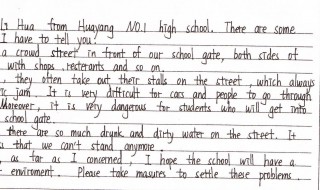 Hua from Huayang NO.1 high school. There are some
I have to tell you!
a crowd street in front of our school gate, both sides of
with shops, resterants and so on.
, they often take out their stalls on the street, which always
ic jam. It is very difficult for cars and people to go through
Moreover, it is very dangerous for students who will get into
school gate.
there are so much drunk and dirty water on the street. It
s that, we can't stand anymore.
, as far as I concerned, I hope the school will have a
enviroment. Please take masures to settle these problems.